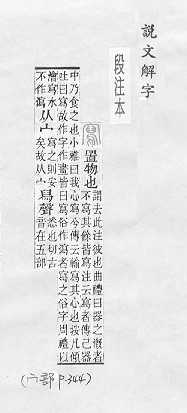 說文解字
段注本
置物也
謂去此注彼也曲禮曰器之溉者
不寫其餘皆寫注云寫者傳己器
中乃食之也小雅曰我心寫兮傳云輸寫其心也按凡傾
吐曰寫故作字作畫皆曰寫俗作瀉者寫之俗字周禮以
澮寫水
不作瀉
从宀
寫之則安
矣故从宀
舄聲
悉也切古
音在五部
(宀部 p.344)